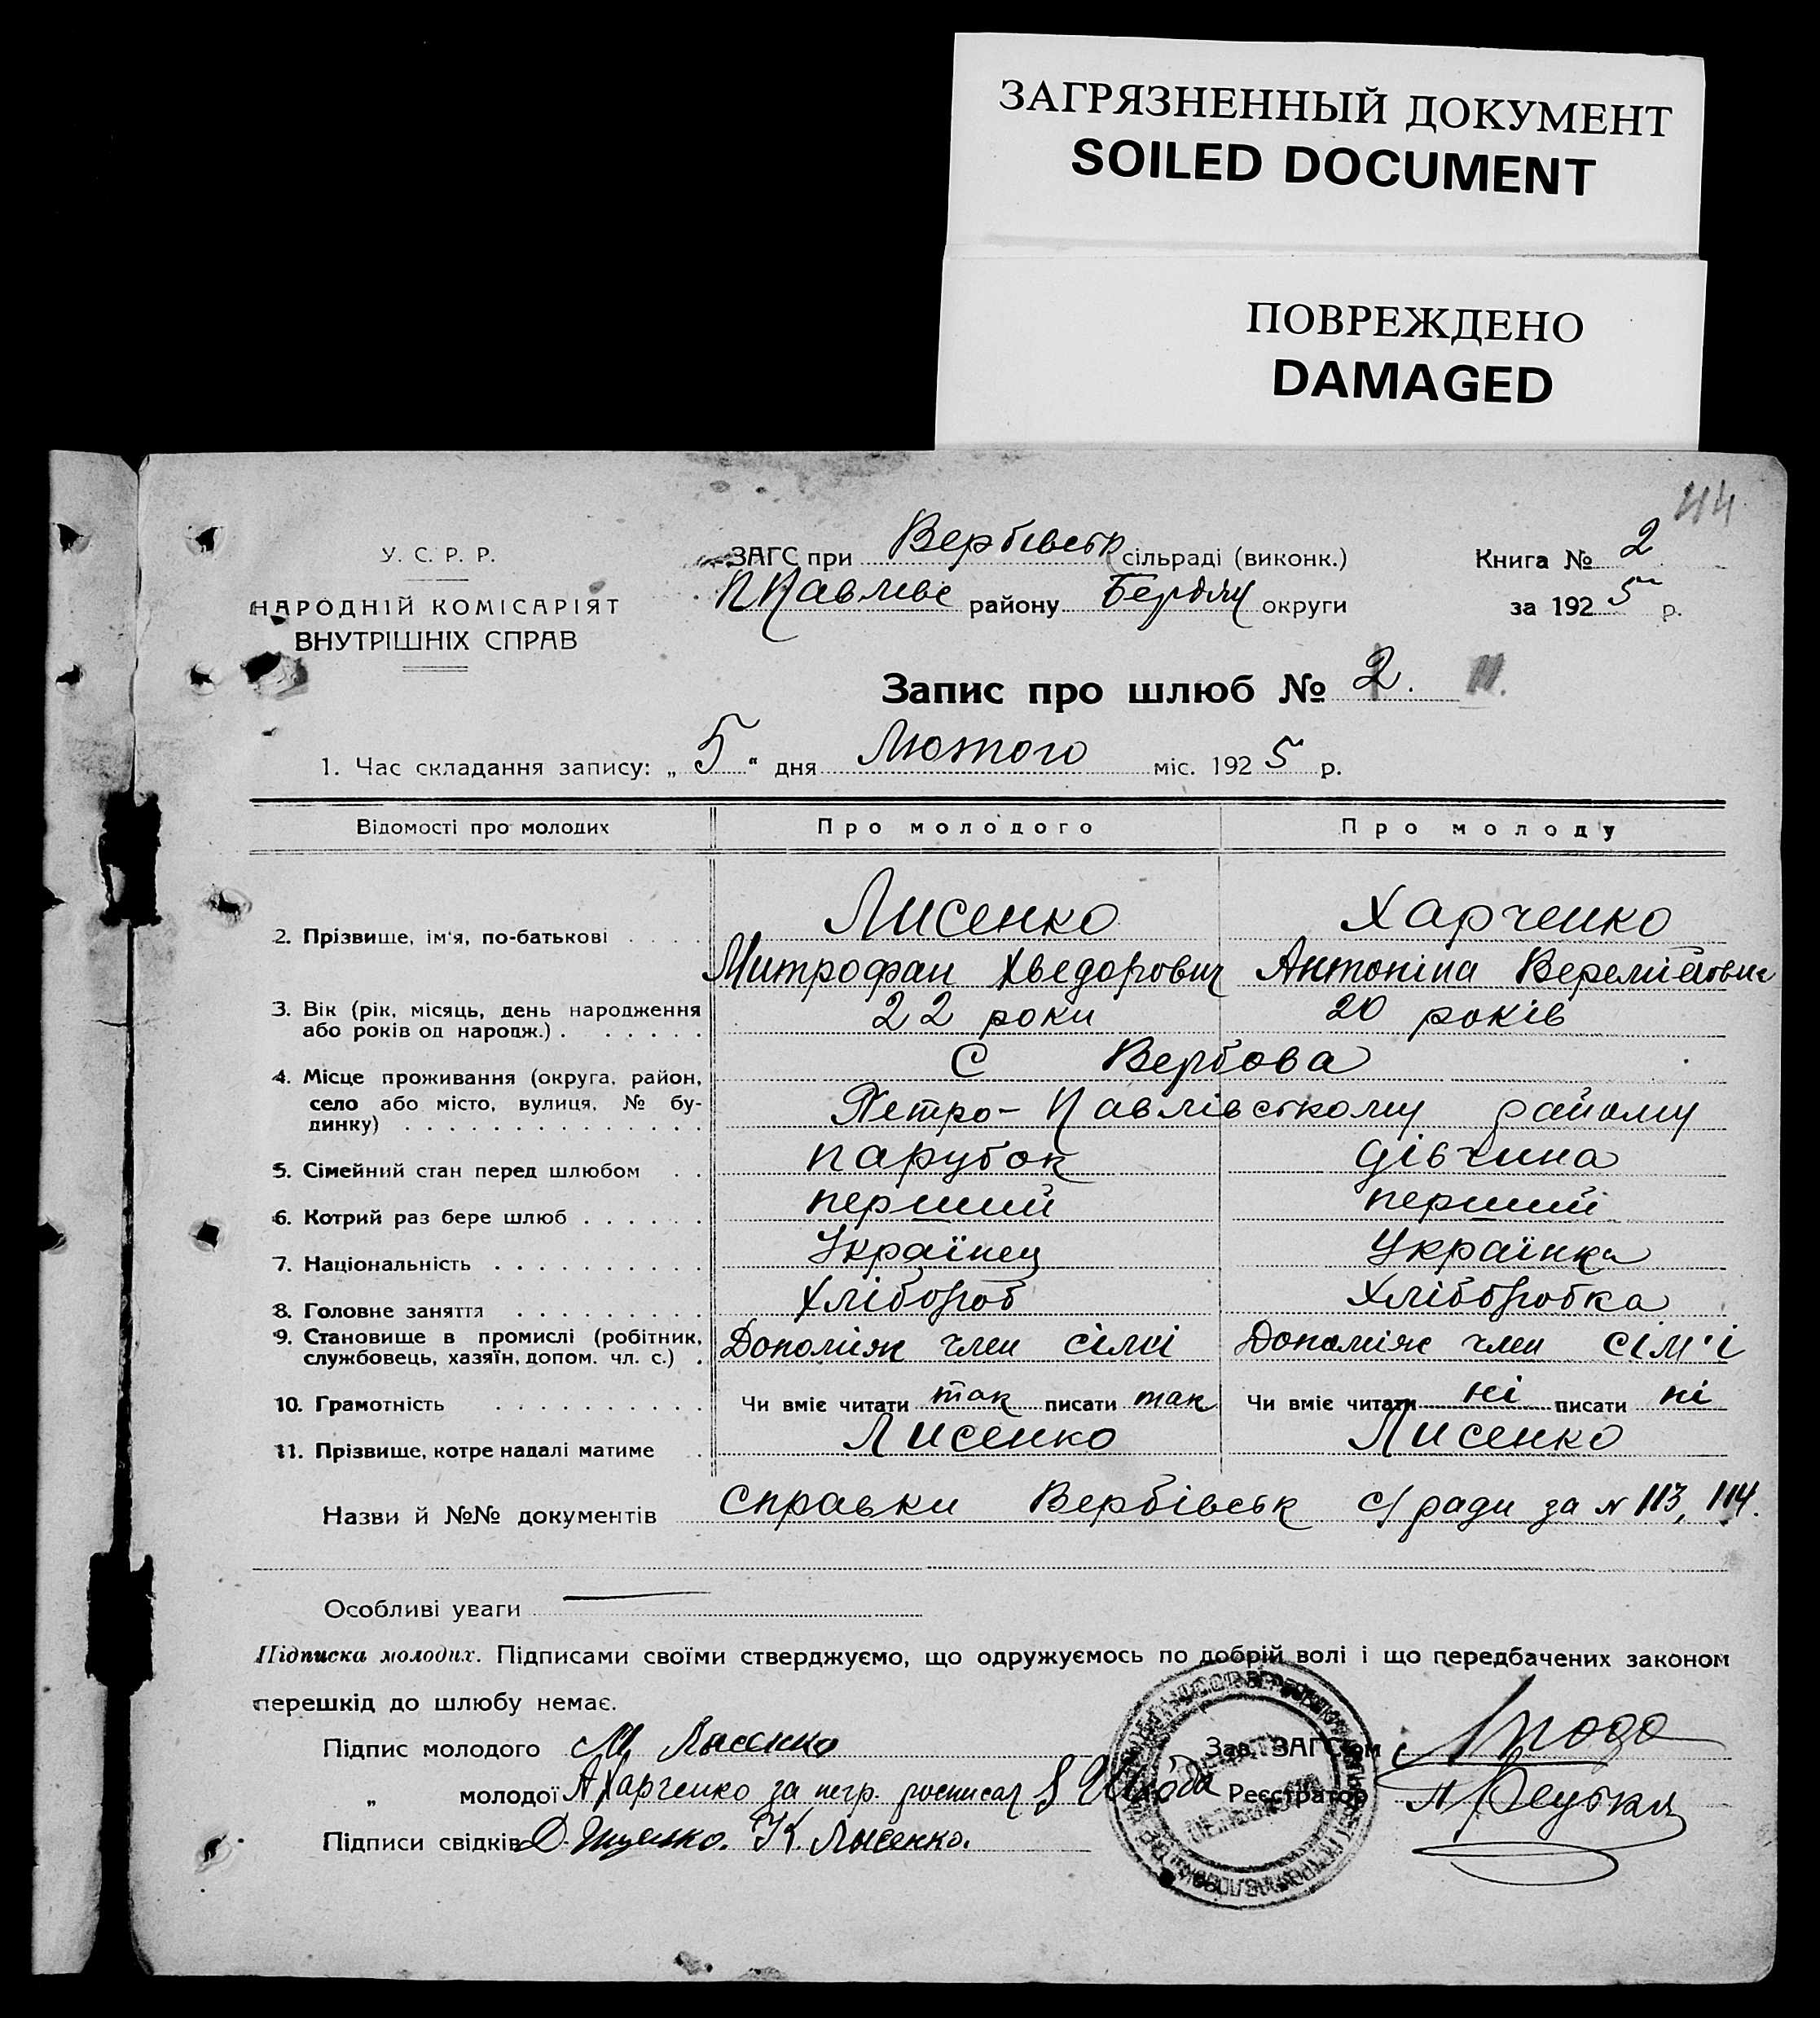 ЗАГРЯЗНЕННЫЙ ДОКУМЕНТ
SOILED DOCUMENT
ПОВРЕЖДЕНО
DAMAGED
У. С. Р. Р.
НАРОДНІЙ КОМІСАРІЯТ
ВНУТРІШНІХ СПРАВ
ЗАГС при Вербівськ сільраді (виконк.)
району округи
Книга № 2
за 1925 р.
Запис про шлюб № 2.
1. Час складання запису: „5“ дня Лютого міс. 1925 р.
Відомості про молодих Про молодого Про молоду
2. Прізвище, ім'я, по-батькові Лисенко Харченко
Митрофан Хведорович Антоніна
3. Вік (рік, місяць, день народження
або років од народж.) 22 роки 20 років
4. Місце проживання (округа, район,
село або місто, вулиця, № бу-
динку)
С Вербова
Петро-Павлівському району
5. Сімейний стан перед шлюбом парубок дівчина
6. Котрий раз бере шлюб перший перший
7. Національність Українец Українка
8. Головне заняття Хлібороб Хліборобка
9. Становище в промислі (робітник,
службовець, хазяїн, допом. чл. с.) Допоміж член сімі Допоміж член сім'ї
10. Грамотність Чи вміє читати так писати так Чи вміє читати ні писати ні
11. Прізвище, котре надалі матиме Лисенко Лисенко
Назви й №№ документів справки Вербівськ с/ради за № 113, 114.
Особливі уваги
Підписка молодих. Підписами своїми стверджуємо, що одружуємось по добрій волі і що передбачених законом
перешкід до шлюбу немає.
Підпис молодого М Лысенко Зав. ЗАГС'ом
„ молодої А Харченко за негр. росписал Реєстратор
Підписи свідків К. Лысенко.